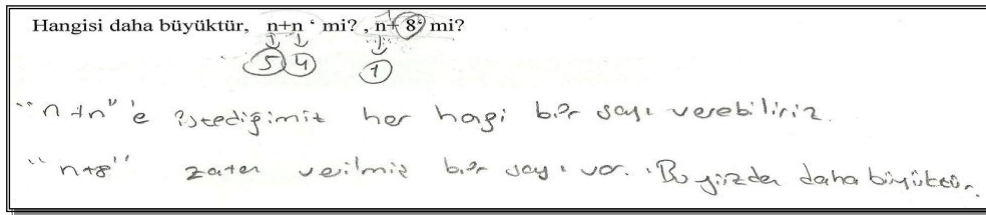 Hangisi daha büyüktür, n+n ' mi? , n+ 8' mi?
5 4 1
"n+n" 'e istediğimiz her hagi bir sayı verebiliriz.
"n+8" zaten verilmiş bir sayı var. Bu yüzden daha büyüktür.